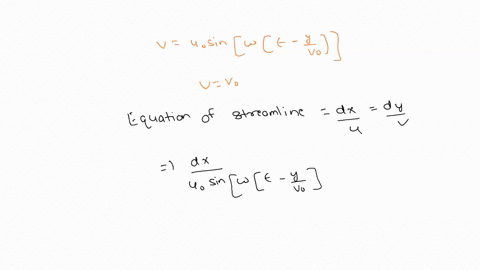 v = u₀ sin [ω [t - y/v₀)]
v = v₀
Equation of streamline = dx/u = dy/v
=) dx/u₀ sin [ω [t - y/v₀]